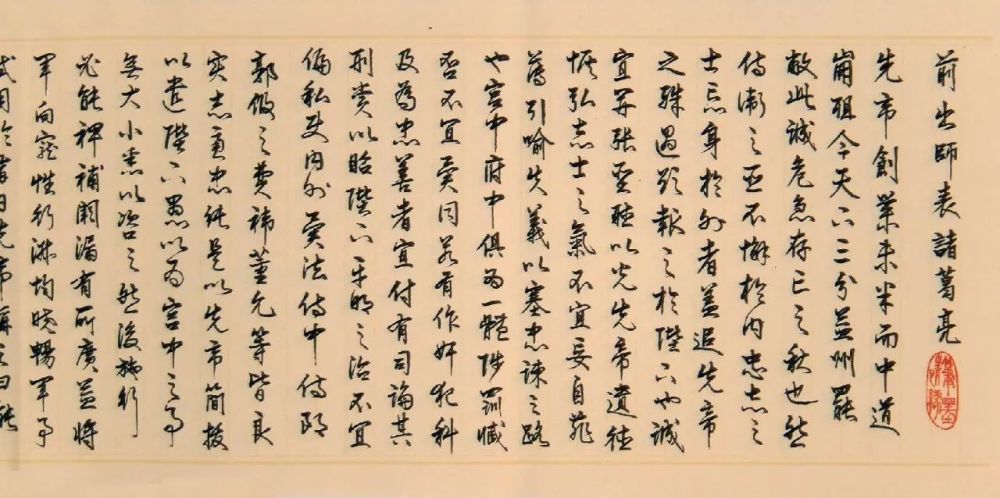 前出師表諸葛亮
先帝創業未半而中道
崩殂今天下三分益州罷
敝此誠危急存亡之秋也然
侍衛之臣不懈於內忠志之
士忘身於外者蓋追先帝
之殊遇欲報之於陛下也誠
宜開張聖聽以光先帝遺德
恢弘志士之氣不宜妄自菲
薄引喻失義以塞忠諫之路
也宮中府中俱為一體陟罰臧
否不宜異同若有作奸犯科
及為忠善者宜付有司論其
刑賞以昭陛下平明之治不宜
偏私使內外異法侍中侍郎
郭攸之費禕董允等皆良
實志慮忠純是以先帝簡拔
以遺陛下愚以為宮中之事
無大小悉以咨之然後施行
必能裨補闕漏有所廣益將
軍向寵性行淑均曉暢軍事
試用於昔日先帝稱之曰能